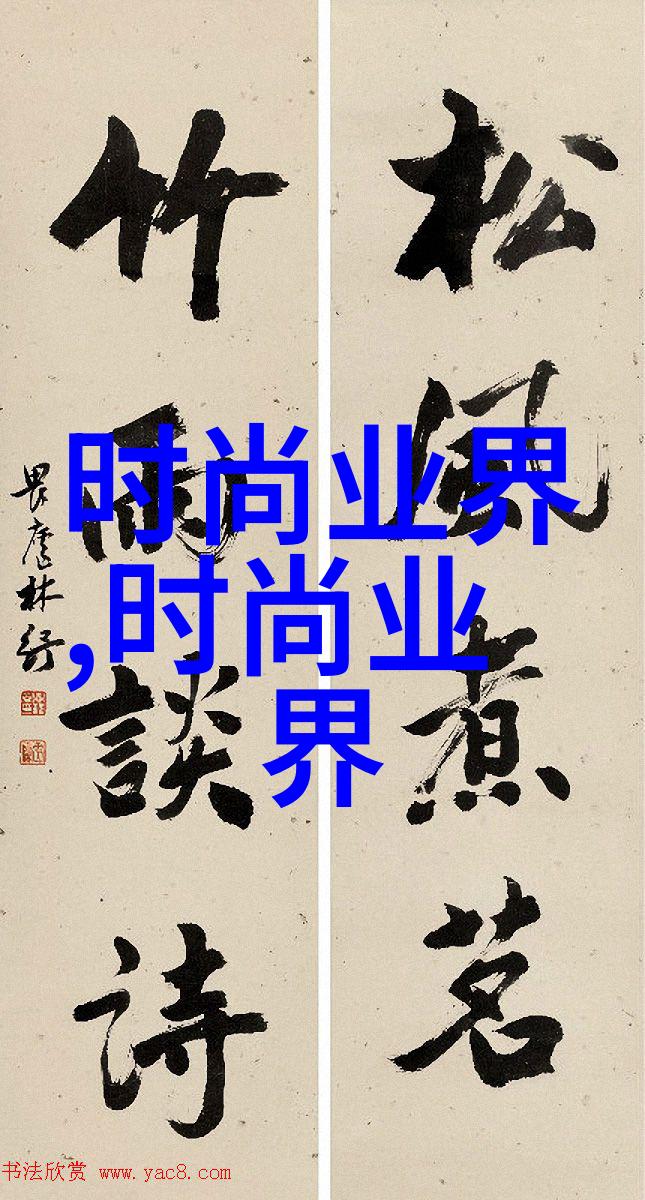 松風煮茗
竹雨談詩
畏廬林紓
时尚业界
,时尚业
界
书法欣赏 www.yac8.com